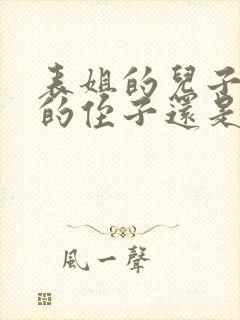 表姐的兒子
的侄子還是
風一聲